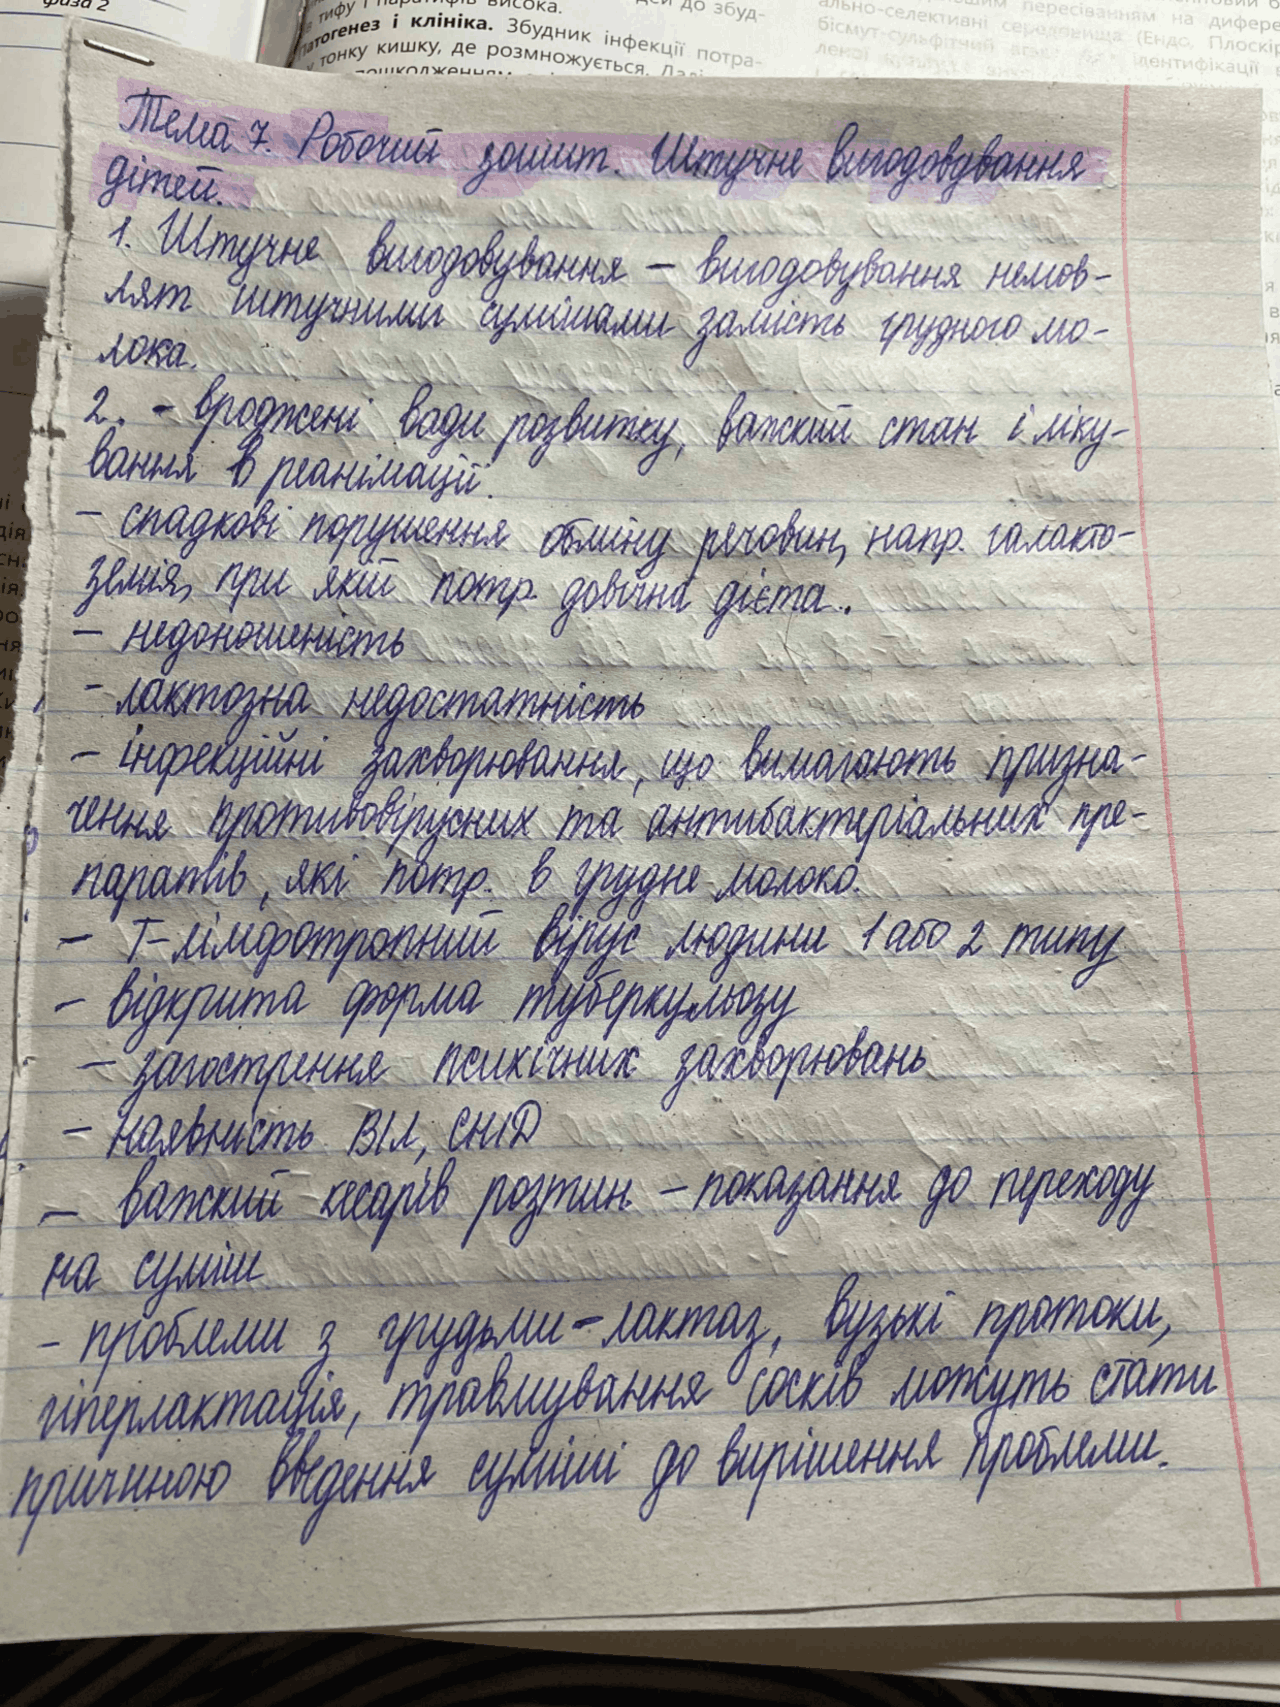 физа 2
тифу і паратифів висока.
Патогенез і клініка. Збудник інфекції потра-
тонку кишку, де розмножується. Далі
Тема 7. Робочий зошит. Штучне вигодовування
дітей.
1. Штучне вигодовування – вигодовування немов-
лят штучними сумішами замість грудного мо-
лока.
2. - вроджені вади розвитку, важкий стан і ліку-
вання в реанімації.
- спадкові порушення обміну речовин, напр. галакто-
земія, при якій потр. довічна дієта.
- недоношеність
- лактозна недостатність
- інфекційні захворювання, що вимагають призна-
чення противовірусних та антибактеріальних пре-
паратів, які потр. в грудне молоко.
- Т-лімфотропний вірус людини 1 або 2 типу
- відкрита форма туберкульозу
- загострення психічних захворювань
- наявність ВІЛ, СНІД
- важкий кесарів розтин - показання до переходу
на суміш
- проблеми з грудьми - лактаз, вузькі протоки,
гіперлактація, травмування сосків можуть стати
причиною введення суміші до вирішення проблеми.